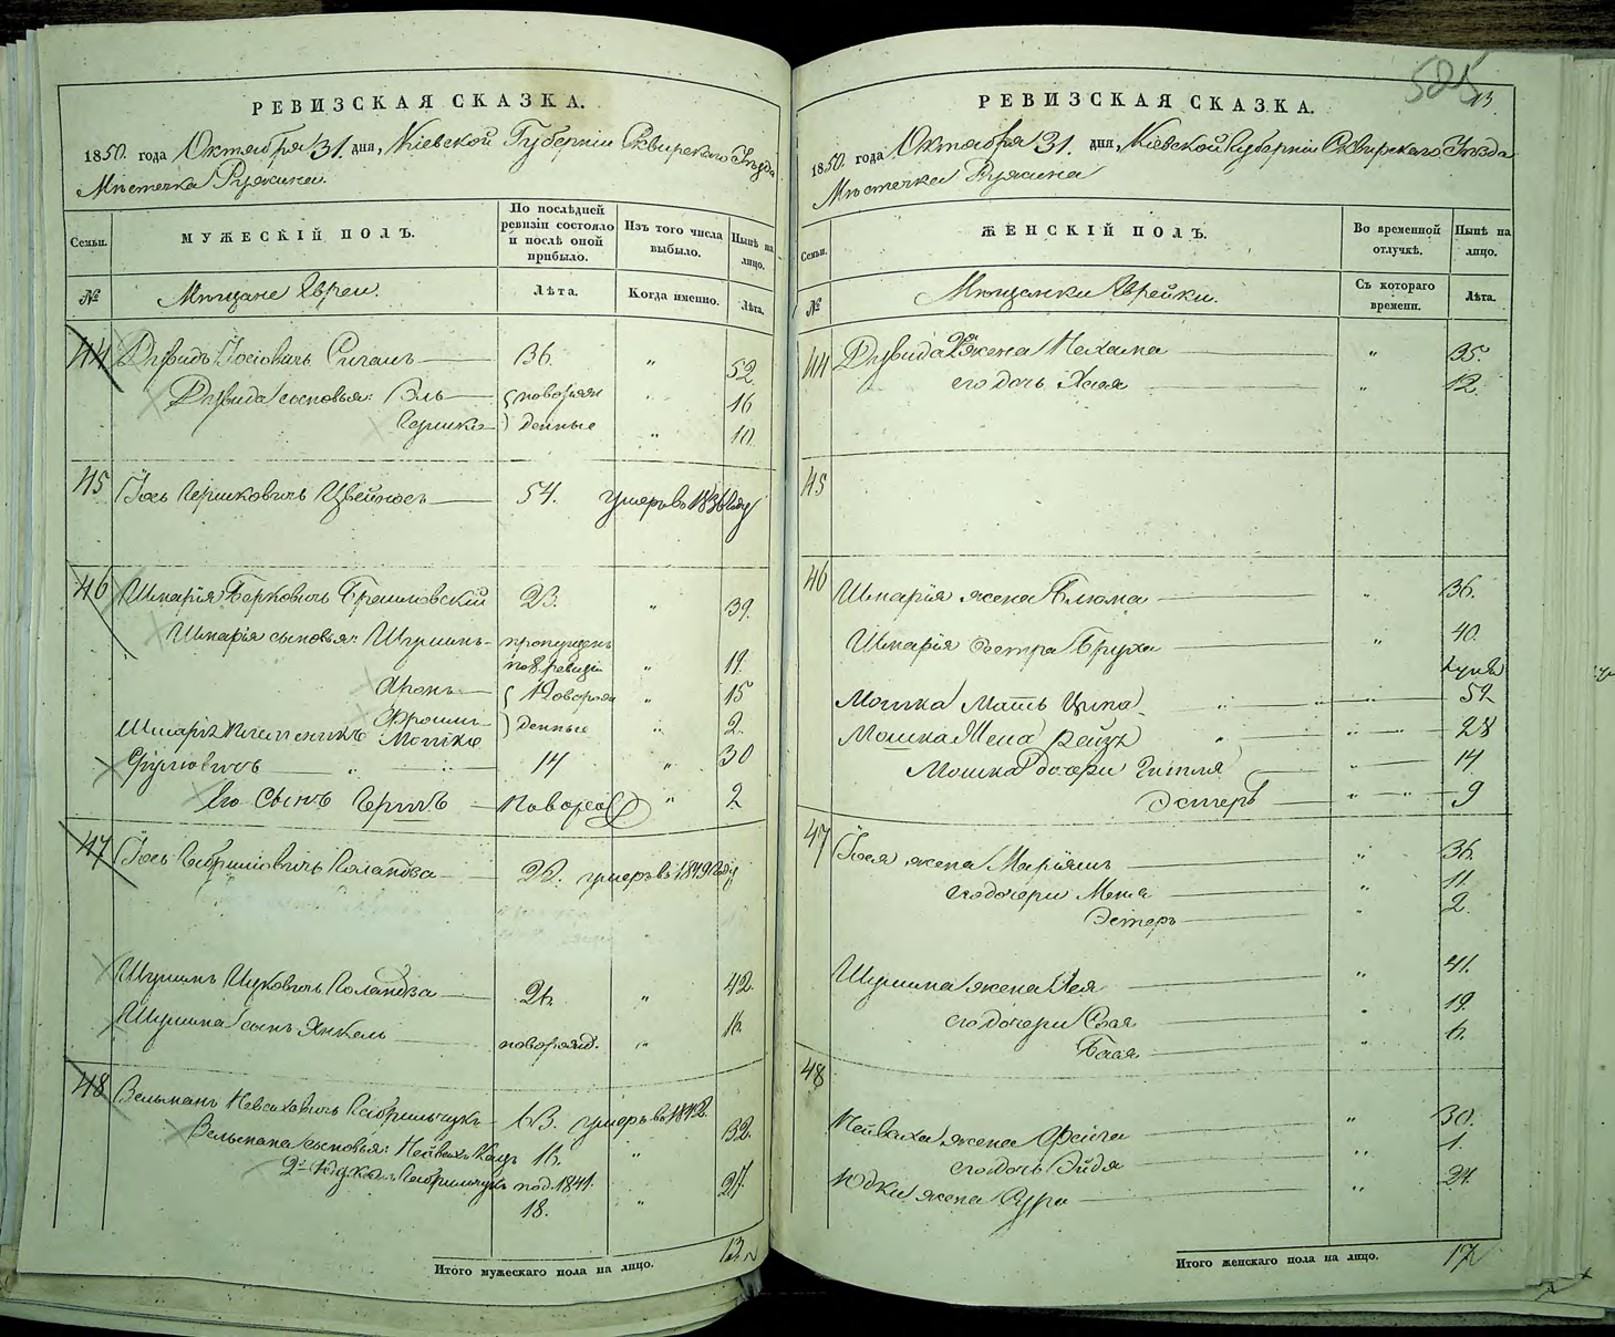 РЕВИЗСКАЯ СКАЗКА.
1850. года Октября 31. дня, Кіевской Губерніи Сквирского Уѣзда
Мѣстечка Ружина.
Семьи.
МУЖЕСКІЙ ПОЛЪ.
По послѣдней ревизіи состояло и послѣ оной прибыло.
Изъ того числа выбыло.
Нынѣ на лицо.
№
Мѣщане Евреи.
Лѣта.
Когда именно.
Лѣта.
44 Дувидъ Іосіовичъ 36. " 52.
Дувида сыновья: Эль новорож 16
Гершко денные " 10.
45 Іось Гершковичъ 54. умеръ въ 1836 году
46 Шмарія Берковичъ 23. " 39.
Шмарія сыновья: Шулимъ пропущенъ
по 8 ревизіи " 19.
Аронъ Новорож " 15
Фроимъ денные " 2.
Шмарія племенникъ Мошко
14 " 30
Его Сынъ Гершъ новорож " 2
47 Іось 22. умеръ въ 1849 году
Шулимъ Ицковичъ 26. " 42.
Шулима сынъ Янкель новорожд. " 16.
48 Вельманъ 63. умеръ въ 1842.
Вельмана сыновья: 16. " 32.
2й Юдка под. 1841.
18. " 27.
Итого мужескаго пола на лицо. 13
525
13
РЕВИЗСКАЯ СКАЗКА.
1850. года Октября 31. дня, Кіевской Губерніи Сквирского Уѣзда
Мѣстечка Ружина
Семьи.
ЖЕНСКІЙ ПОЛЪ.
Во временной отлучкѣ.
Нынѣ на лицо.
№
Мѣщанки Еврейки.
Съ котораго времени.
Лѣта.
44 Дувида 2я жена Нехама " 35.
его дочь Хая " 12.
45
46 Шмарія жена Блюма " 36.
Шмарія сестра Бруха " 40.
Мошка Мать Ципа " 52
Мошка Жена Рейзя " 28
Мошка дочери Гитля " 14
Эстеръ " 9
47 Іося жена Маріямъ " 36.
его дочери Меня " 11.
Эстеръ " 2.
Шулима жена Лея " 41.
его дочери Сося " 19.
Бася " 6.
48
жена Фейга " 30.
его дочь Эйдя " 1.
Юдки жена Сура " 24.
Итого женскаго пола на лицо. 17